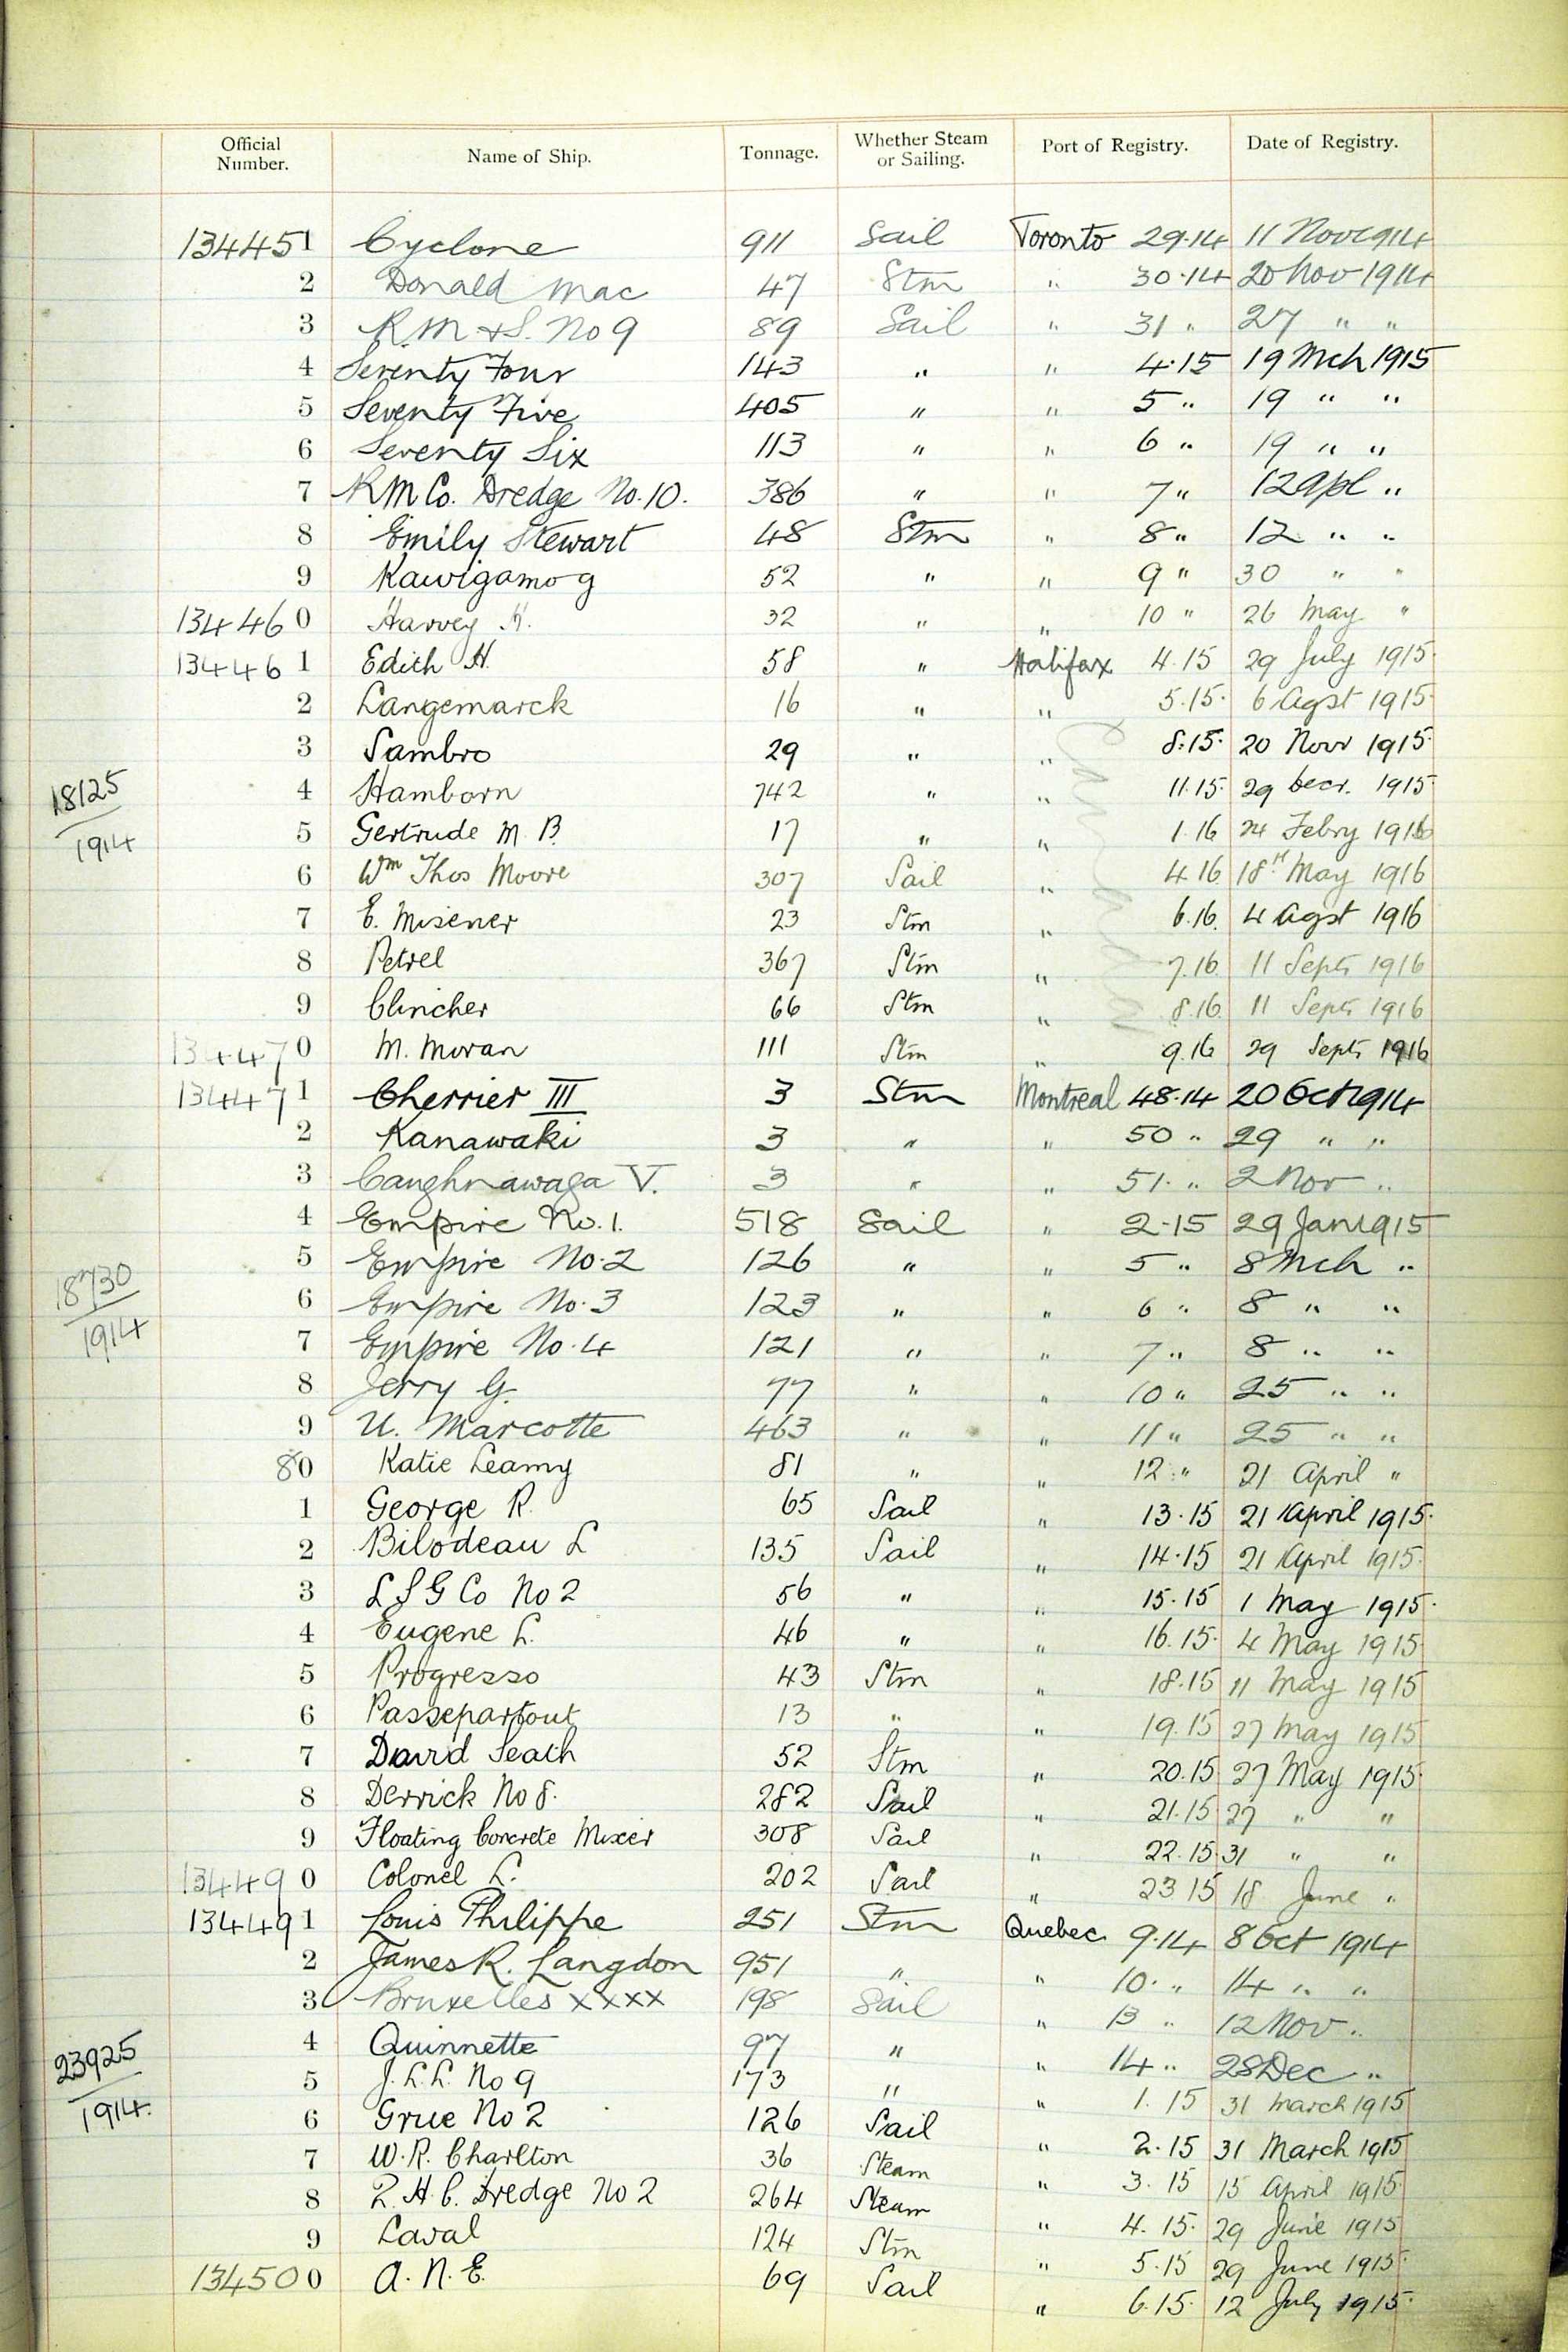 Official Number. Name of Ship. Tonnage. Whether Steam or Sailing. Port of Registry. Date of Registry.
134451 Cyclone 911 Sail Toronto 29.14 11 Nov 1914
2 Donald Mac 47 Stm " 30.14 20 Nov 1914
3 R M & S. No 9 89 Sail " 31 " 27 " "
4 Seventy Four 143 " " 4.15 19 Mch 1915
5 Seventy Five 405 " " 5 " 19 " "
6 Seventy Six 113 " " 6 " 19 " "
7 R M Co. Dredge No. 10. 386 " " 7 " 12 Apl "
8 Emily Stewart 48 Stm " 8 " 12 " "
9 Kawigamog 52 " " 9 " 30 " "
134460 Harvey K. 32 " " 10 " 26 May "
134461 Edith H. 58 " Halifax 4.15 29 July 1915.
2 Langemarck 16 " " 5.15. 6 Agst 1915.
3 Sambro 29 " " 8.15. 20 Novr 1915.
18125 4 Hamborn 742 " " 11.15. 29 Decr. 1915.
1914 5 Gertrude M. B. 17 " " 1.16 24 Febry 1916
6 Wm Thos Moore 307 Sail " 4.16. 18th May 1916
7 E. Misener 23 Stm " 6.16. 4 Agst 1916
8 Petrel 367 Stm " 7.16. 11 Septr 1916
9 Clincher 66 Stm " 8.16. 11 Septr 1916
134470 M. Moran 111 Stm " 9.16 29 Septr 1916
134471 Cherrier III 3 Stm Montreal 48.14 20 Oct 1914
2 Kanawaki 3 " " 50 " 29 " "
3 Caughnawaga V. 3 " " 51. " 2 Nov "
4 Empire No. 1. 518 Sail " 2.15 29 Jan 1915
18730 5 Empire No. 2 126 " " 5 " 8 Mch "
6 Empire No. 3 123 " " 6 " 8 " "
1914 7 Empire No. 4 121 " " 7 " 8 " "
8 Jerry G. 77 " " 10 " 25 " "
9 U. Marcotte 463 " " 11 " 25 " "
80 Katie Leamy 81 " " 12 " 21 April "
1 George R. 65 Sail " 13.15 21 April 1915.
2 Bilodeau L 135 Sail " 14.15 21 April 1915.
3 L S G Co No 2 56 " " 15.15 1 May 1915.
4 Eugene L. 46 " " 16.15. 4 May 1915
5 Progresso 43 Stm " 18.15 11 May 1915
6 Passepartout 13 " " 19.15 27 May 1915
7 David Seath 52 Stm " 20.15 27 May 1915.
8 Derrick No 8. 282 Sail " 21.15 27 " "
9 Floating Concrete Mixer 308 Sail " 22.15 31 " "
134490 Colonel L. 202 Sail " 23 15 18 June "
134491 Louis Philippe 251 Stm Quebec 9.14 8 Oct 1914
2 James R. Langdon 951 " " 10. " 14 " "
3 Bruxelles xxxx 198 Sail " 13 " 12 Nov "
23925 4 Quinnette 97 " " 14 " 28 Dec "
1914. 5 J. L. L. No 9 173 " " 1. 15 31 March 1915
6 Grue No 2 126 Sail " 2.15 31 March 1915
7 W. R. Charlton 36 Steam " 3. 15 15 April 1915.
8 Q. H. C. Dredge No 2 264 Steam " 4. 15. 29 June 1915
9 Laval 124 Stm " 5.15 29 June 1915.
134500 A. N. E. 69 Sail " 6.15. 12 July 1915.
Canada